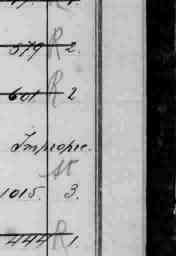 579 R 2.
601 R 2
Improper.
1015. 3.
444 R 1.